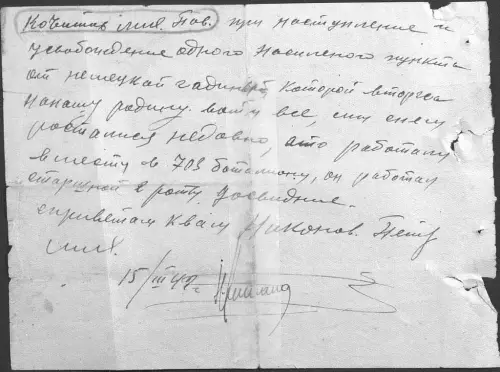 Кочетив Мих. Пав. при наступление и
усвобождение одного населеного пункта
от немецкой гадины, которой вторгса
на нашу родину. вот и все, сним
росталися недовно, ато работали
вместу в 703 боталиону, он работал
старшиной в роты. Досвидние.
сприветам Квам Никонов. Петр
Мих.
15/III 42г